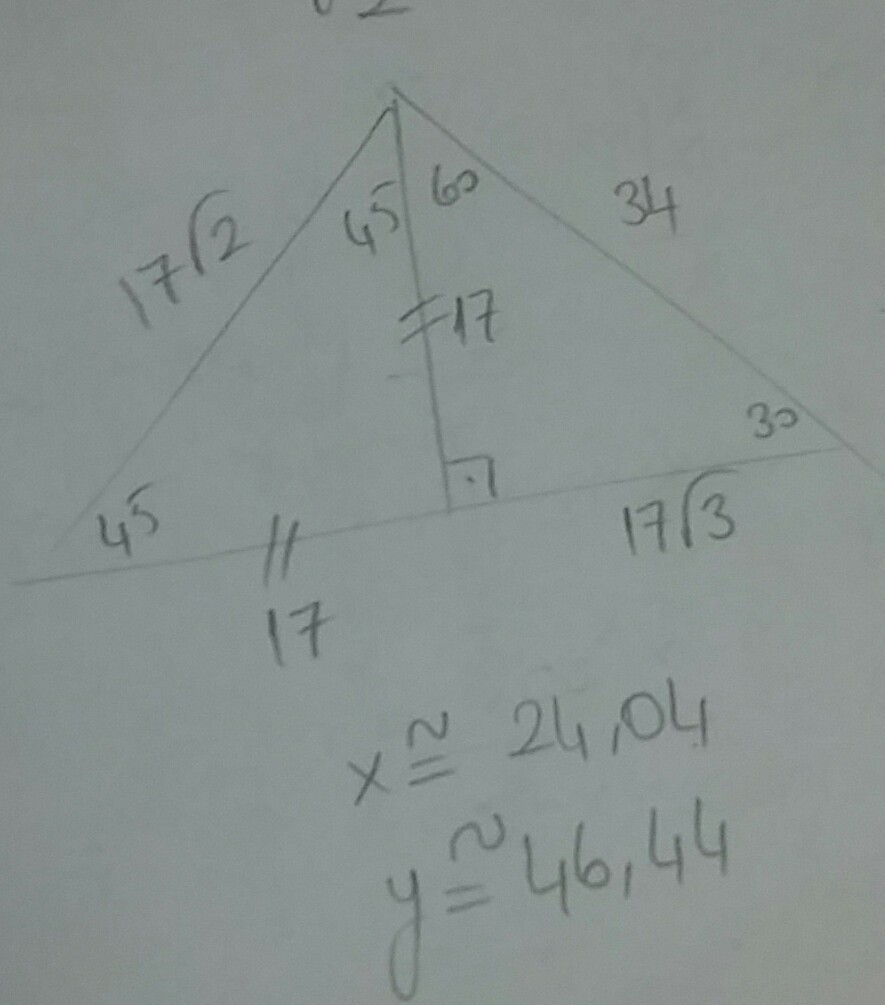 17√2
45
60
34
17
30
45
17
17√3
x ≅ 24,04
y ≅ 46,44